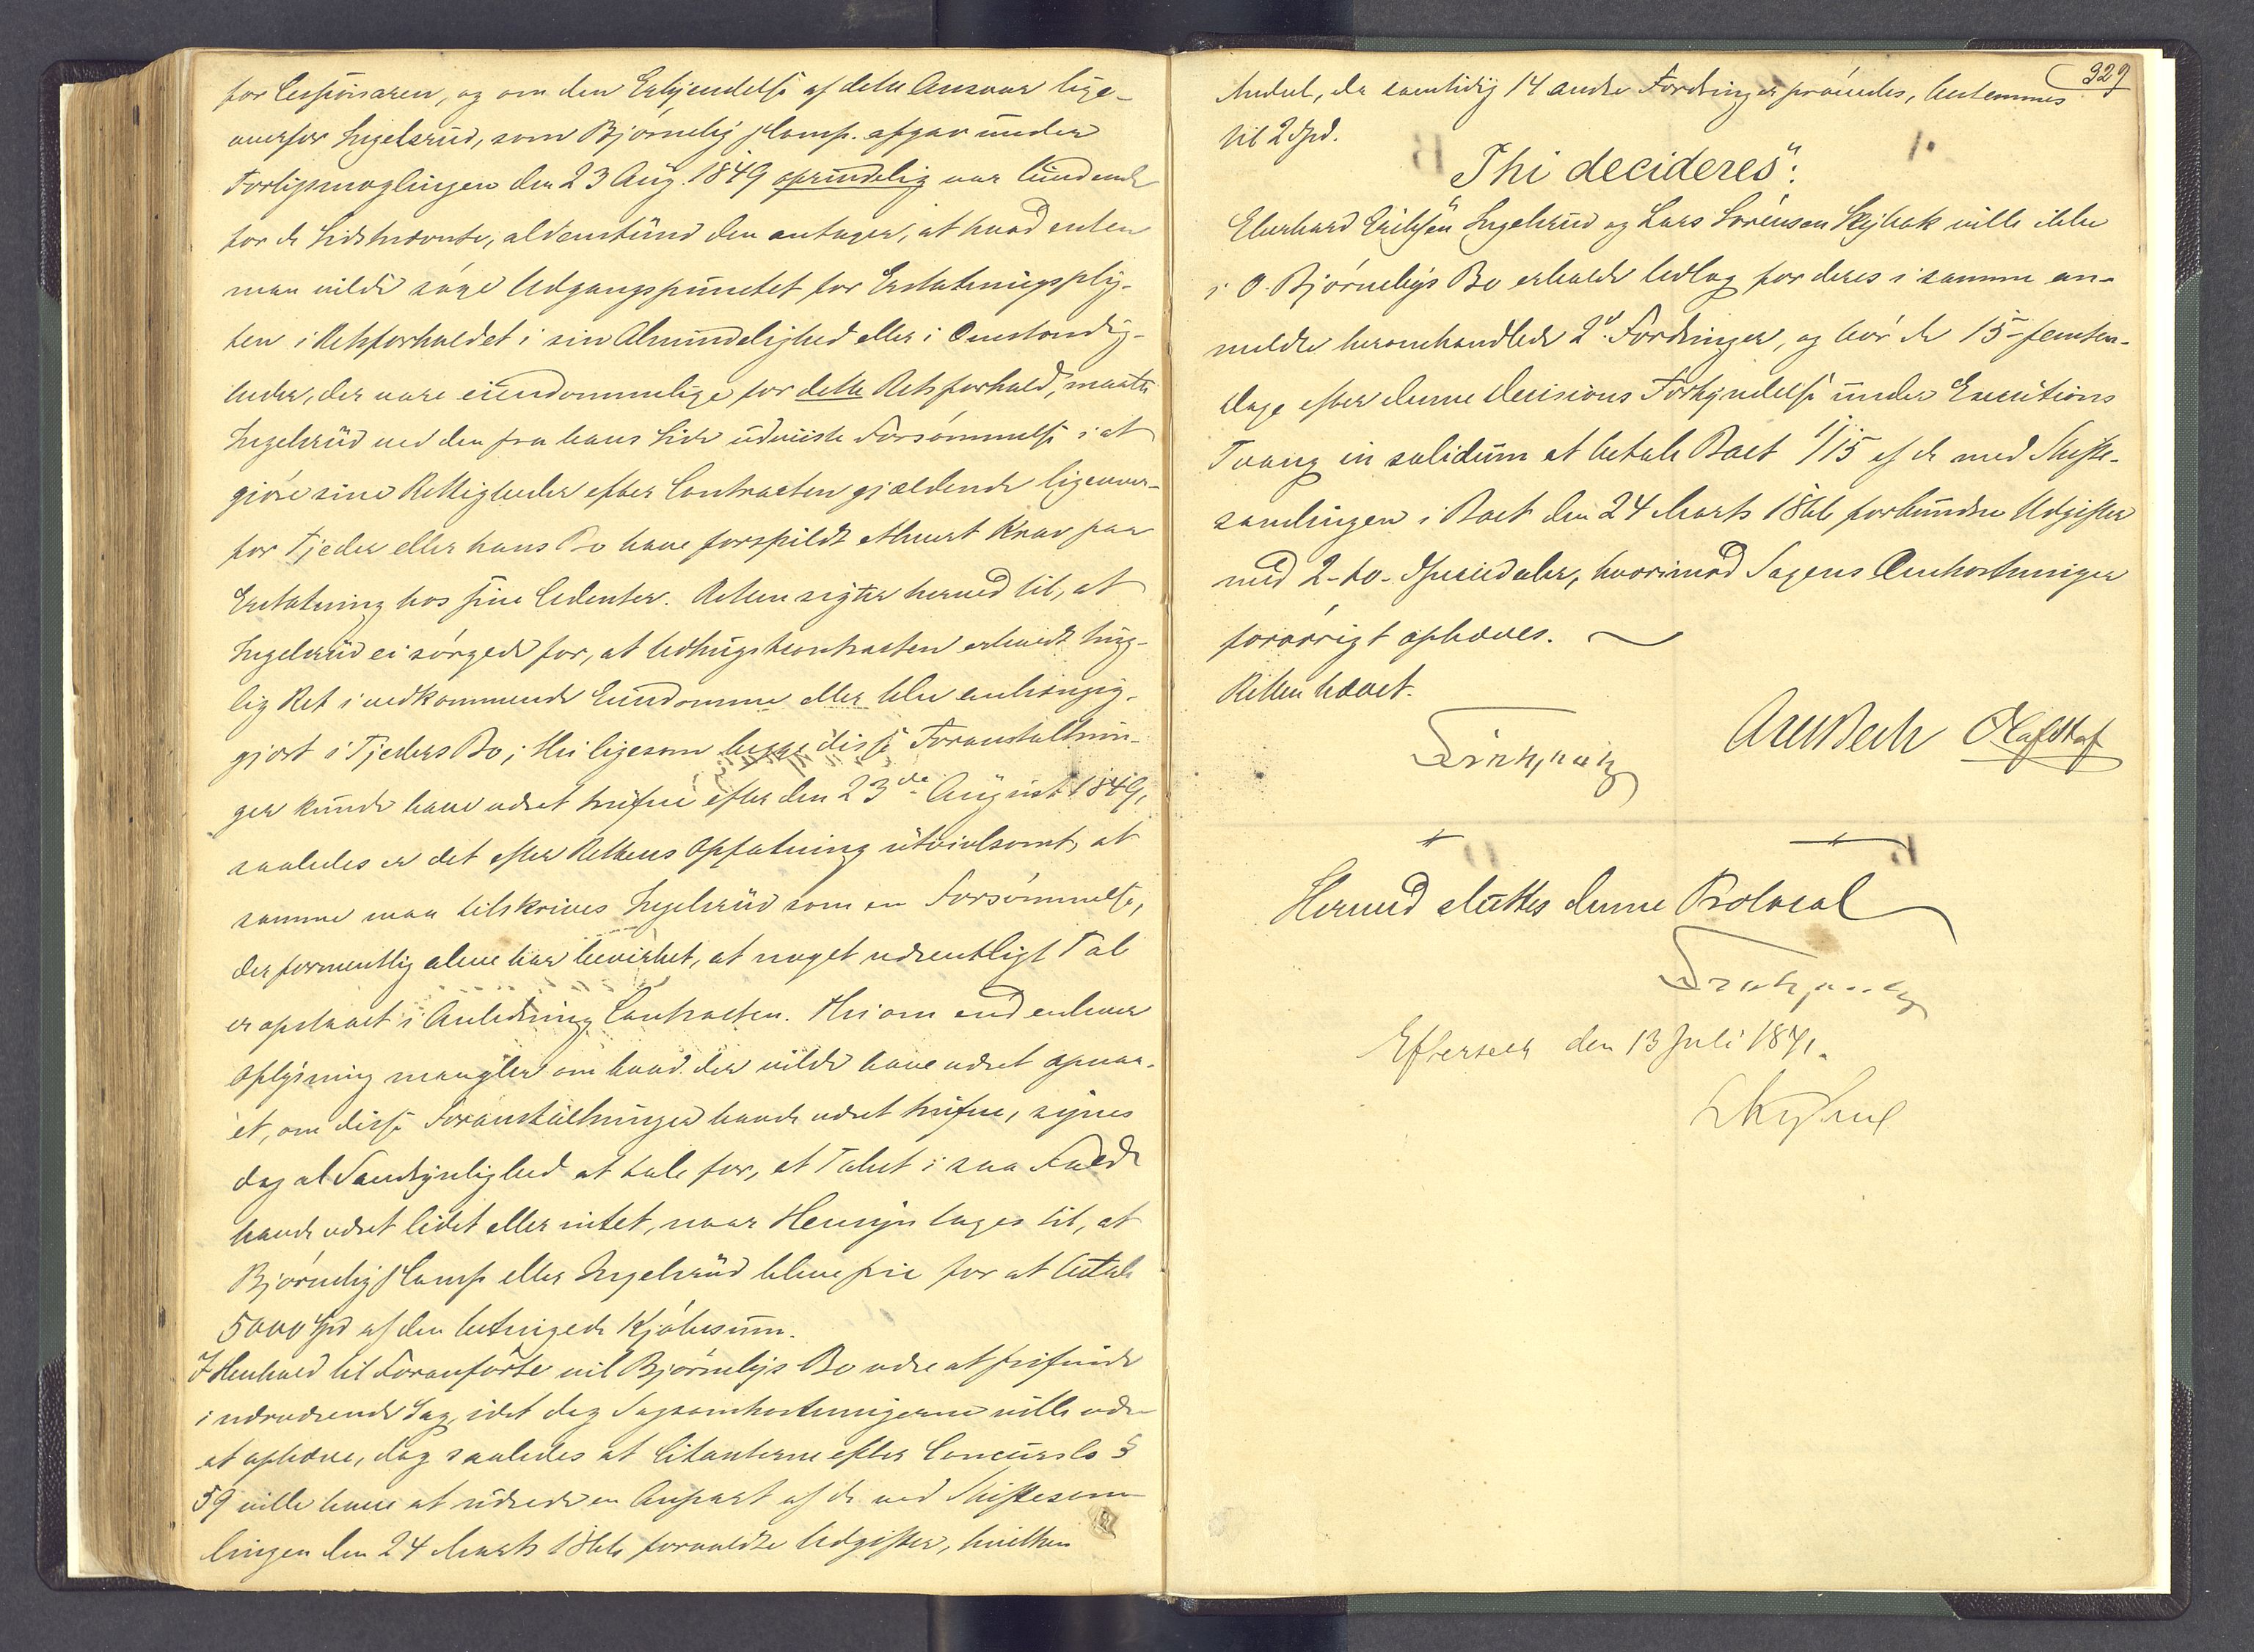 for Cessionaren, og om den Erkjendelse af dette Ansvar lige-
overfor Ingelsrud, som Bjørneby & Comp. afgav under
Forligsmæglingen den 23 Aug. 1849 oprindelig var bindende
for de Sidstnævnte, alvenstund den antager, at hvad enten
man vilde søge Udgangspunctet for Erstatningsplig-
ten i Retsforholdet i sin Almindelighed eller i Omstændig-
heder, der vare eiendommelige for dette Retsforhold, maatte
Ingelsrud ved den fra hans Side udviiste Forsømmelse i at
gjøre sine Rettigheder efter Contracten gjældende ligeover-
for Tjeder eller hans Bo have forspildt ethvert Krav paa
Erstatning hos sine Cedenter. Retten sigter herved til, at
Ingelsrud ei sørgede for, at Udhugstcontracten erholdt ting-
lig Ret i vedkommende Eiendomme eller blev anhængig-
gjort i Tjeders Bo; thi ligesom begge disse Foranstaltnin-
ger kunde have været trufne efter den 23de August 1849,
saaledes er det efter Rettens Opfatning utvivlsomt, at
samme maa tilskrives Ingelsrud som en Forsømmelse,
der formentlig alene har bevirket, at noget væsentligt Tab
er opstaaet i Anledning Contracten. Thi om end enhver
Oplysning mangler om hvad der vilde have været opnaa-
et, om disse Foranstaltninger havde været trufne, synes
dog al Sandsynlighed at tale for, at Tabet i saa Fald
havde været lidet eller intet, naar Hensyn tages til, at
Bjørneby & Comp eller Ingelsrud bleve frie for at betale
5000 Spd af den betingede Kjøbesum.
I Henhold til Foranførte vil Bjørnebys Bo være at frifinde
i nærværende Sag, idet dog Sagsomkostningerne ville være
at ophæve, dog saaledes at Citanterne efter Concursls §
59 ville have at udrede en Anpart af de ved Skiftesam
lingen den 24 Marts 1866 forvoldte Udgifter, hvilken
329
Andel, da samtidig 14 andre Fordringer prøvedes, bestemmes
til 2 Spd.
"Thi decideres":
Eberhard Eriksen Ingelsrud og Lars Sørensen Skybak ville ikke
i O. Bjørnebys Bo erholde Udlæg for deres i samme an-
meldte heromhandlede 2de Fordringer, og bør de 15 - femten -
dage efter denne Decisions Forkyndelse under Executions
Tvang in solidum at betale Boet 1/15 af de med Skifte-
samlingen i Boet den 24 Marts 1866 forbundne Udgifter
med 2 - to - Speciedaler, hvorimod Sagens Omkostninger
forøvrigt ophæves.
Retten hævet.
Hermed sluttes denne Protocol
Efterseet den 13 Juli 1871.